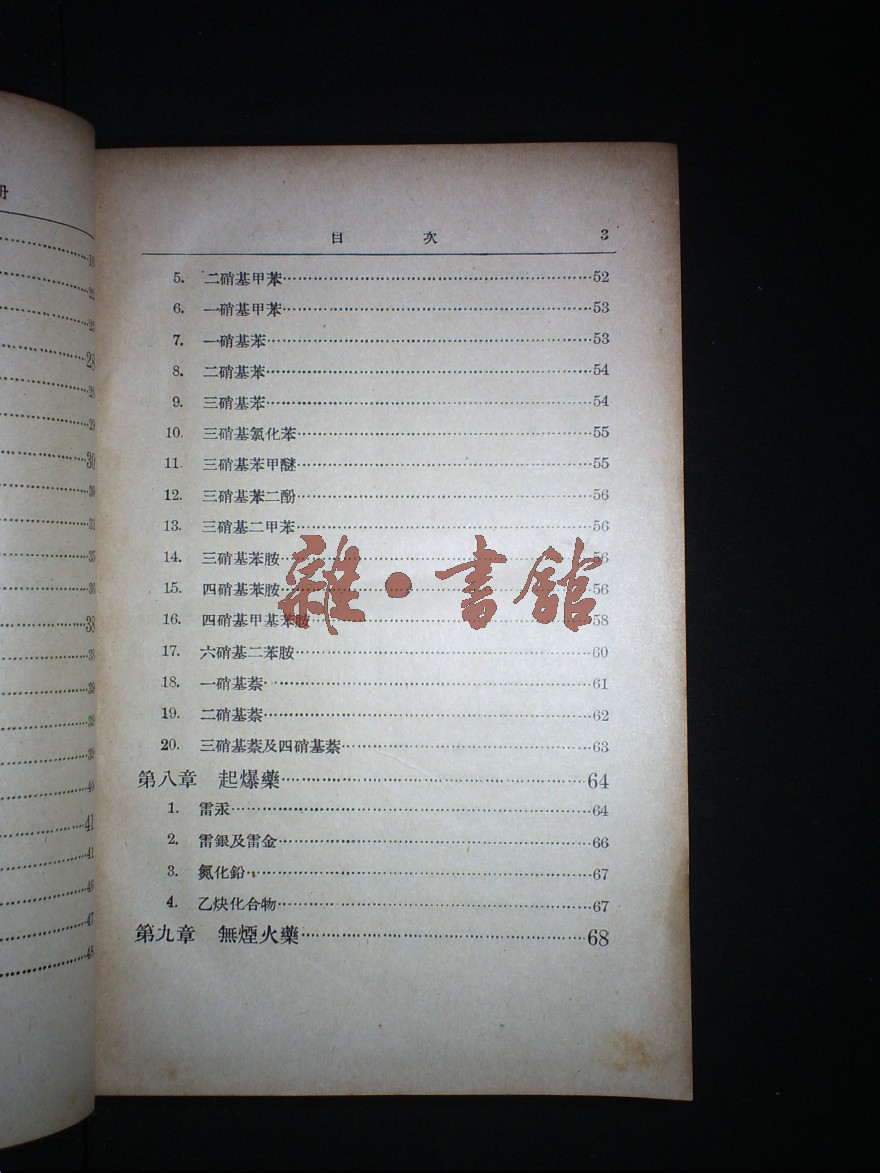 册
18
22
23
28
28
29
30
30
31
35
36
38
38
39
39
39
40
41
41
46
47
48
目 次 3
5. 二硝基甲苯 52
6. 一硝基甲苯 53
7. 一硝基苯 53
8. 二硝基苯 54
9. 三硝基苯 54
10. 三硝基氯化苯 55
11. 三硝基苯甲醚 55
12. 三硝基苯二酚 56
13. 三硝基二甲苯 56
14. 三硝基苯胺 56
15. 四硝基苯胺 56
16. 四硝基甲基苯胺 58
17. 六硝基二苯胺 60
18. 一硝基萘 61
19. 二硝基萘 62
20. 三硝基萘及四硝基萘 63
第八章 起爆藥 64
1. 雷汞 64
2. 雷銀及雷金 66
3. 氮化鉛 67
4. 乙炔化合物 67
第九章 無煙火藥 68
雜·書館